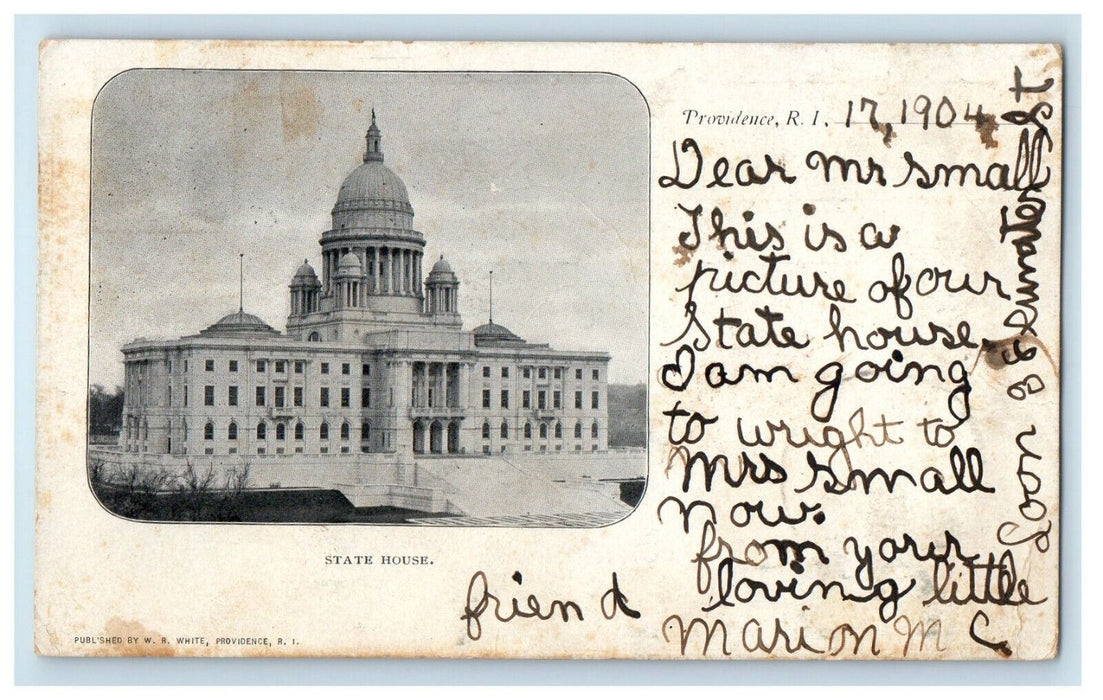 Providence, R. I. 17, 1904
Dear mr small
This is a
picture of our
State house.
I am going
to wright to
Mrs small
now.
from your
loving little
friend Marion Mc
Soon
St
STATE HOUSE.
PUBL'SHED BY W. R. WHITE, PROVIDENCE, R. I.